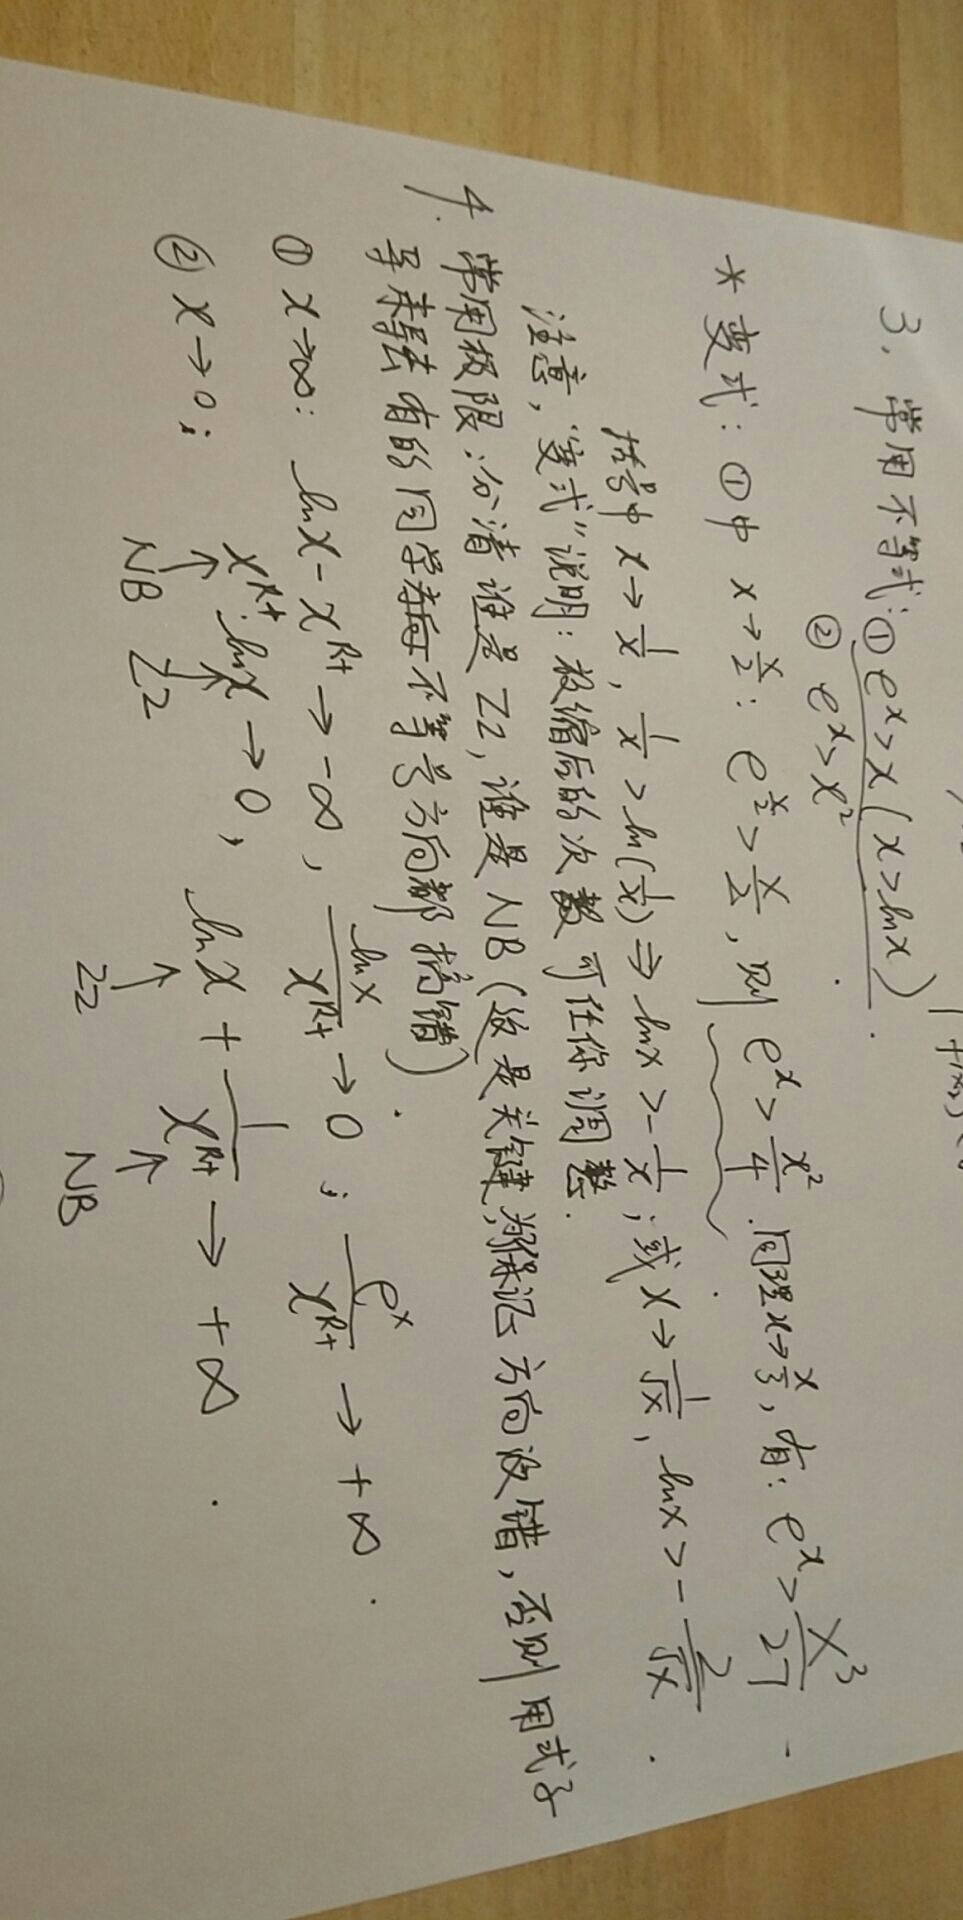 3. 常用不等式: ① eˣ > x (x > lnx).
② eˣ > x²
* 变式: ①中 x→x/2: e^(x/2) > x/2, 则 eˣ > x²/4. 同理x→x/3, 有: eˣ > x³/27.
括号中 x→1/x, 1/x > ln(1/x) ⇒ lnx > -1/x; 或 x→1/√x, lnx > -2/√x.
注意, "变式"说明: 放缩后的次数可任你调整.
4. 常用极限: 分清谁是ZZ, 谁是NB (这是关键, 确保记方向没错, 否则用式子
寻求导法有的同学每每不等号方向都搞错).
① x→∞: lnx - x^(R+) → -∞, lnx/x^(R+) → 0; eˣ/x^(R+) → +∞.
② x→0: x^(R+)·lnx → 0, lnx + 1/x^(R+) → +∞.
↑ ↑ ↑ ↑
NB ZZ ZZ NB